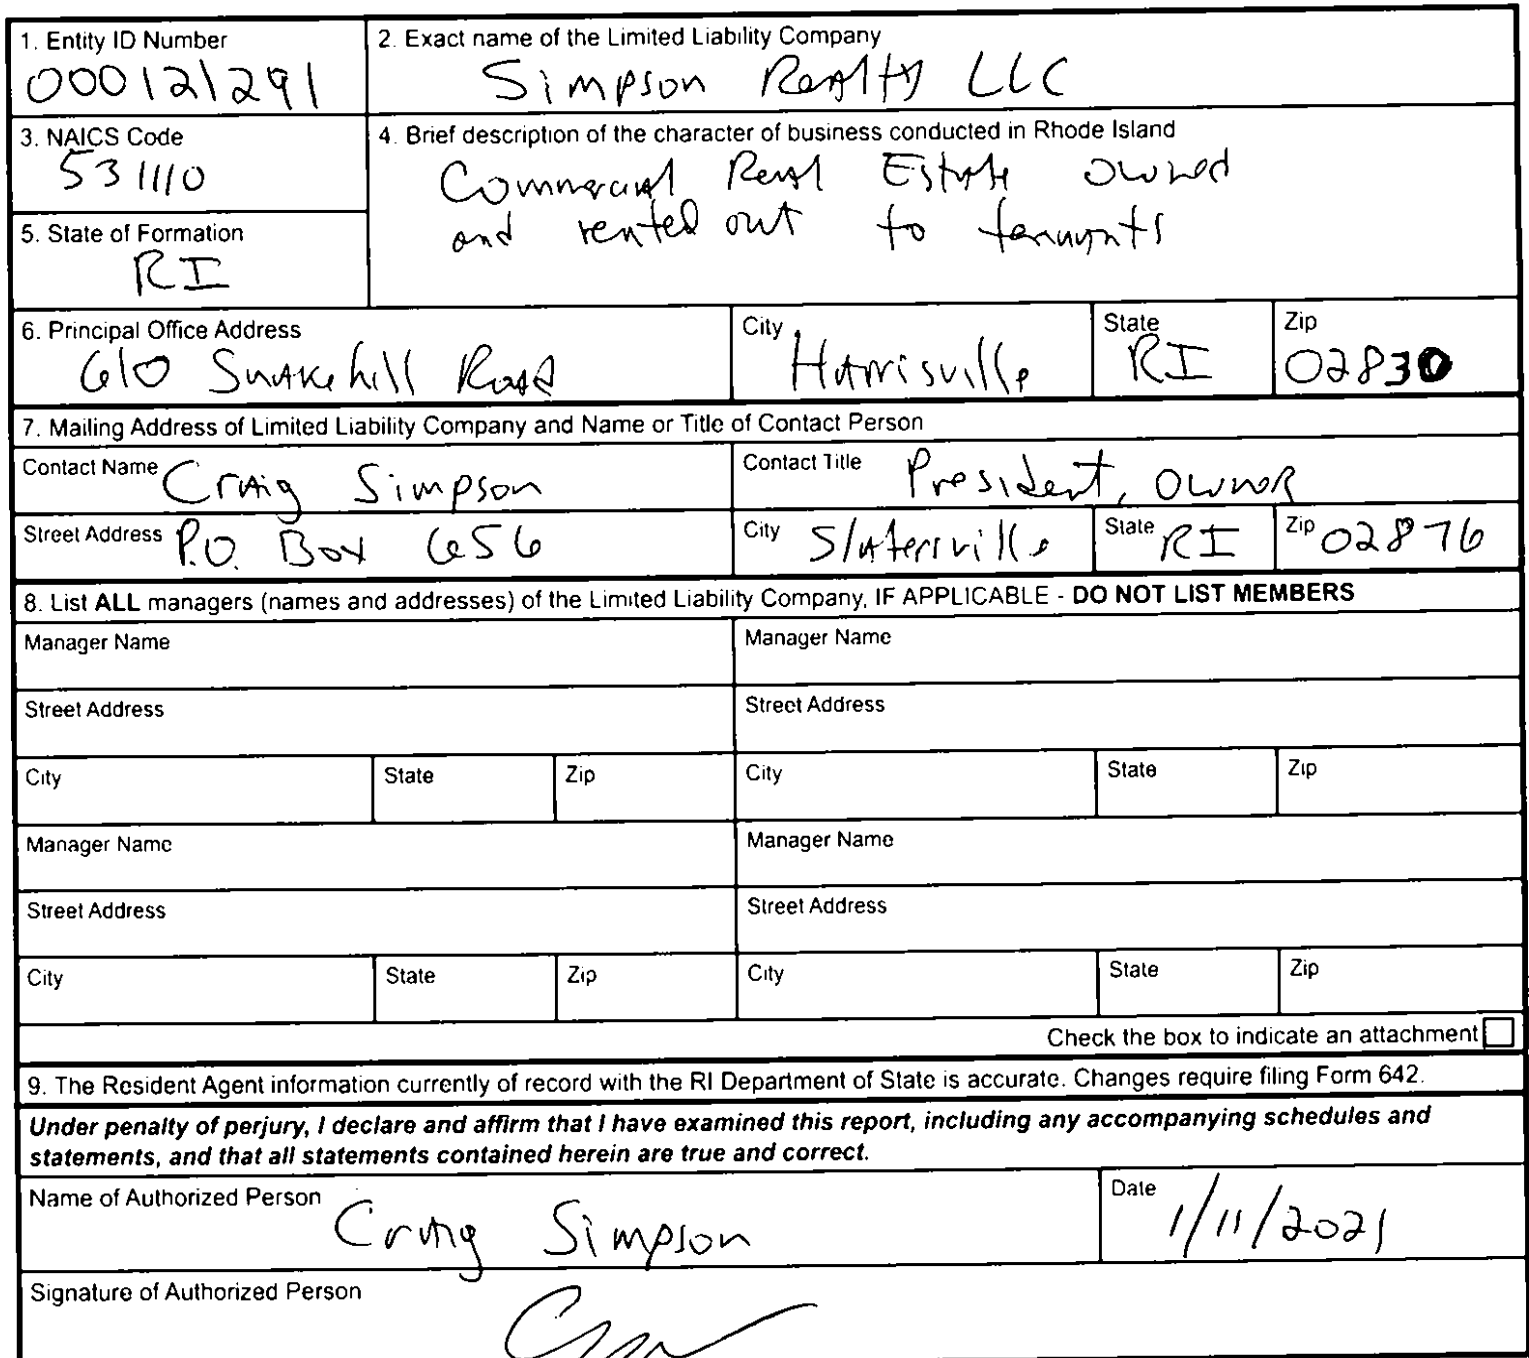 1. Entity ID Number
000121291
2. Exact name of the Limited Liability Company
Simpson Realty LLC
3. NAICS Code
531110
4. Brief description of the character of business conducted in Rhode Island
Commercial Real Estate owned
and rented out to tenants
5. State of Formation
RI
6. Principal Office Address
610 Snakehill Road
City
Harrisville
State
RI
Zip
02830
7. Mailing Address of Limited Liability Company and Name or Title of Contact Person
Contact Name Craig Simpson
Contact Title President, owner
Street Address P.O. Box 656
City Slatersville
State RI
Zip 02876
8. List ALL managers (names and addresses) of the Limited Liability Company, IF APPLICABLE - DO NOT LIST MEMBERS
Manager Name
Manager Name
Street Address
Street Address
City State Zip City State Zip
Manager Name
Manager Name
Street Address
Street Address
City State Zip City State Zip
Check the box to indicate an attachment
9. The Resident Agent information currently of record with the RI Department of State is accurate. Changes require filing Form 642.
Under penalty of perjury, I declare and affirm that I have examined this report, including any accompanying schedules and
statements, and that all statements contained herein are true and correct.
Name of Authorized Person Craig Simpson
Date 1/11/2021
Signature of Authorized Person